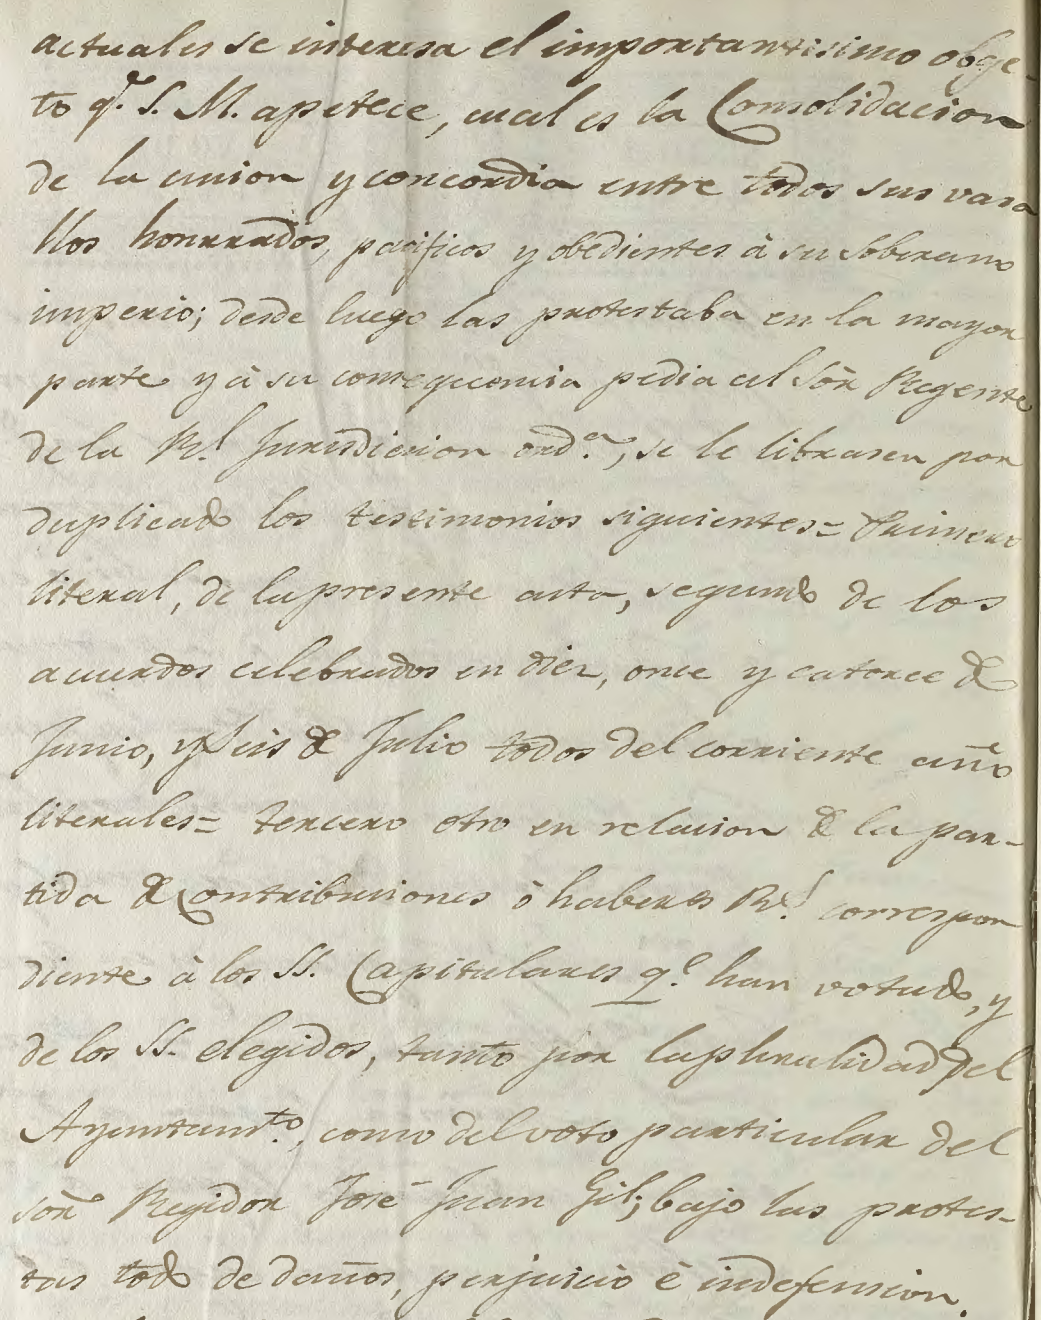 actuales se interesa el importantisimo obge-
to q.e S. M. apetece, cual es la Consolidacion
de la union y concordia entre todos sus vasa
llos honrrados, pacificos y obedientes à su Soberano
imperio; desde luego las protestaba en la mayor
parte y à su consequencia pedia al Sõr Regente
de la R.l Jurisdiccion ord.a, se le librasen por
duplicado los testimonios siguientes= Primero
literal, de la presente acta, segundo de los
acuerdos celebrados en diez, once y catorce de
Junio, y Seis de Julio todos del corriente año
literales= tercero otro en relacion de la par-
tida de Contribuciones ò haberes R.s correspon
diente à los SS. Capitulares q.e han votado, y
de los SS. elegidos, tanto por la pluralidad del
Ayuntam.to, como del voto particular del
Sõr Regidor José Juan Gil; bajo las protes-
tas todo de daños, perjuicio è indefension.